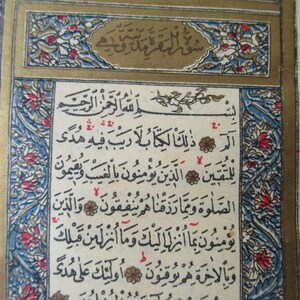 سورة البقرة مدنية وهي
بسم الله الرحمن الرحيم
الم ذلك الكتاب لا ريب فيه هدى
للمتقين الذين يؤمنون بالغيب ويقيمون
الصلوة ومما رزقناهم ينفقون والذين
يؤمنون بما أنزل إليك وما أنزل من قبلك
وبالآخرة هم يوقنون أولئك على هدى